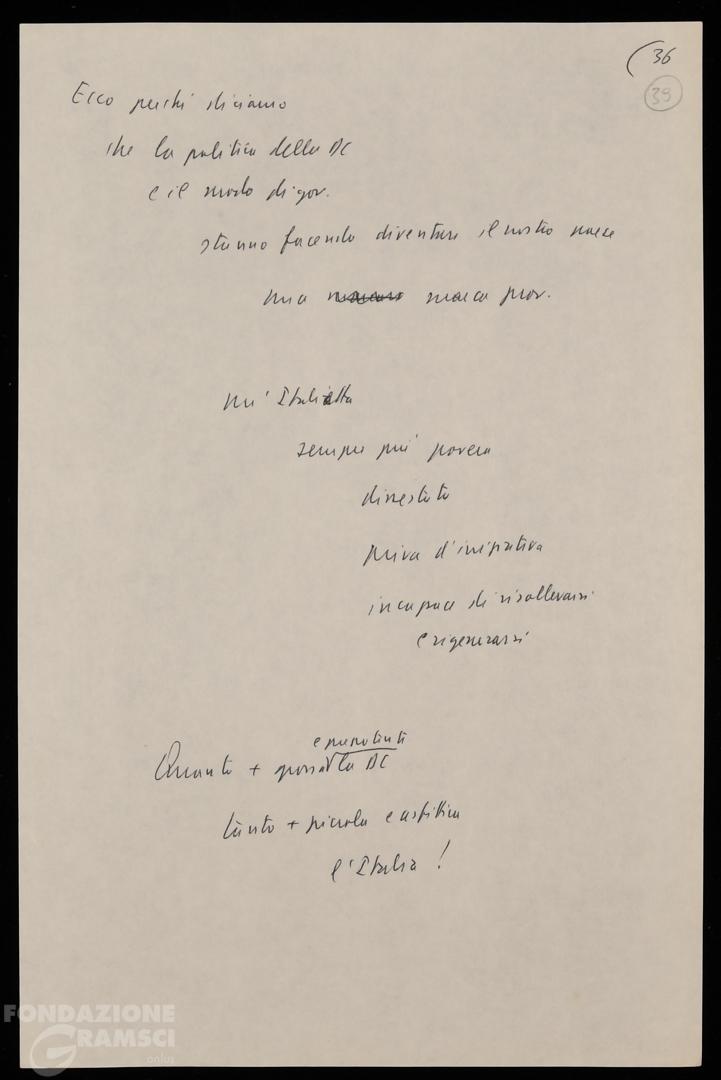 (36
39
Ecco perché diciamo
che la politica della DC
e il modo di gov.
stanno facendo diventare il nostro paese
una marca prov.
un' Italietta
sempre più povera
dissestata
priva d'iniziativa
incapace di risollevarsi
e rigenerarsi
e prepotente
Quanto + grossa la DC
tanto + piccola e asfittica
l'Italia!
FONDAZIONE
GRAMSCI
onlus